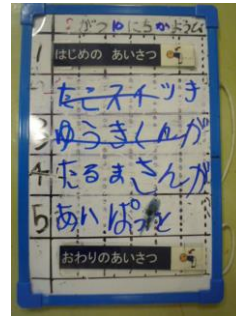 がつ にちかようび
1 はじめの あいさつ
2 たこスイッつき
3 ゆうきくんが
4 たるまさんが
5 あいぱっと
おわりのあいさつ